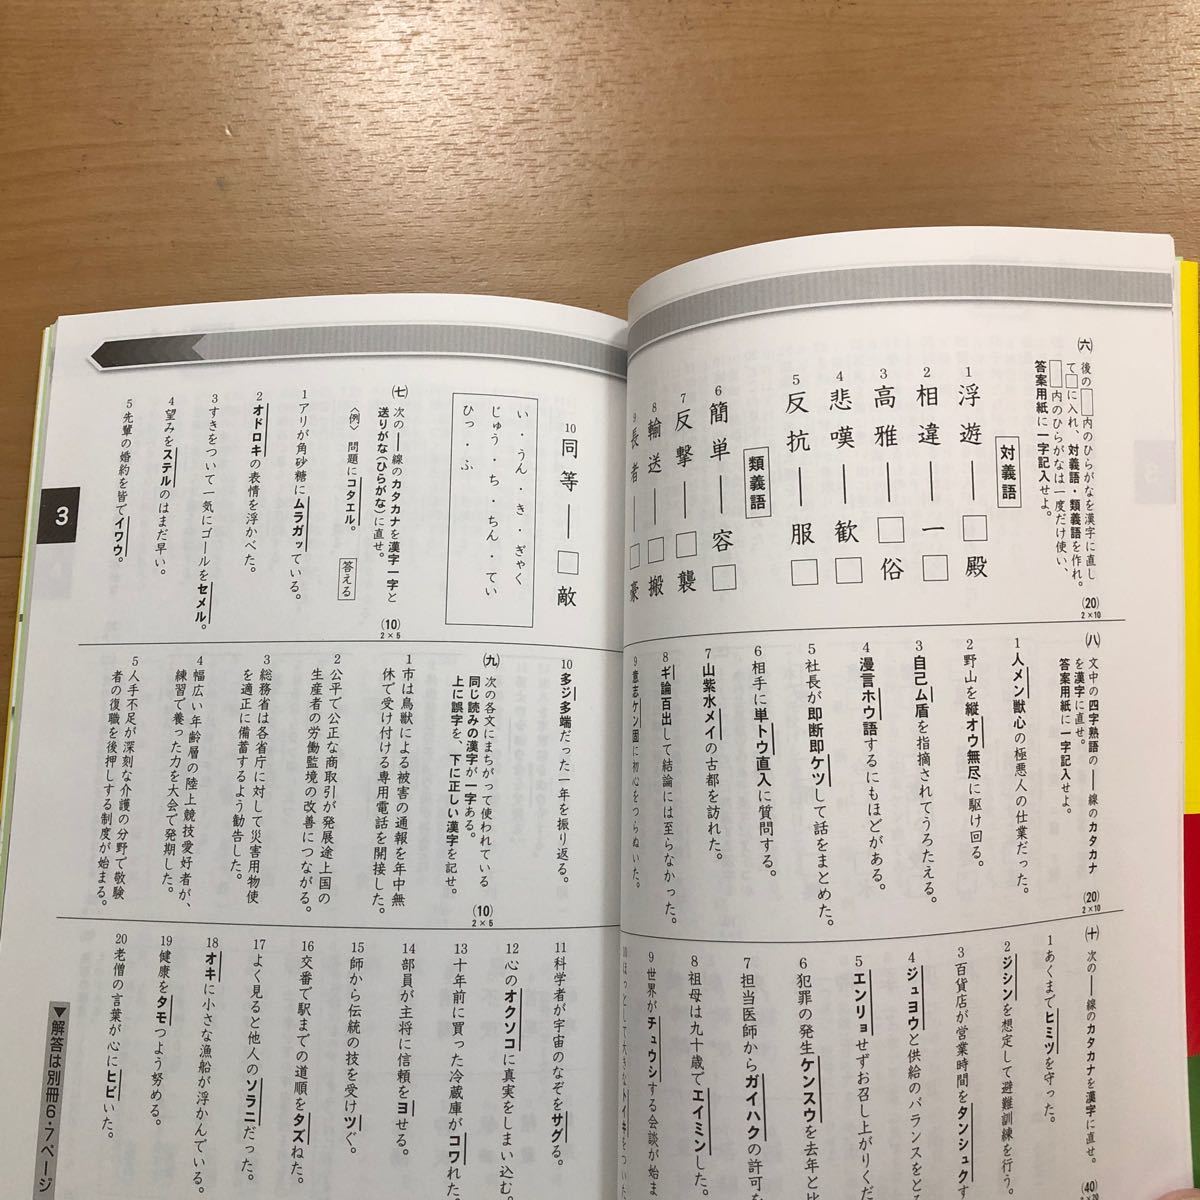 ㈥ 後の□内のひらがなを漢字に直し
て□に入れ、対義語・類義語を作れ。
□内のひらがなは一度だけ使い、
答案用紙に一字記入せよ。
(20)
2×10
対義語
1 浮遊―□殿
2 相違―一□
3 高雅―□俗
4 悲嘆―歓□
5 反抗―服□
類義語
6 簡単―容□
7 反撃―□襲
8 輸送―□搬
9 長者―□豪
10 同等―□敵
い・うん・き・ぎゃく
じゅう・ち・ちん・てい
ひっ・ふ
㈦ 次の――線のカタカナを漢字一字と
送りがな(ひらがな)に直せ。
〈例〉問題にコタエル。 答える
(10)
2×5
1 アリが角砂糖にムラガッている。
2 オドロキの表情を浮かべた。
3 すきをついて一気にゴールをセメル。
4 望みをステルのはまだ早い。
5 先輩の婚約を皆でイワウ。
㈧ 文中の四字熟語の――線のカタカナ
を漢字に直せ。
答案用紙に一字記入せよ。
(20)
2×10
1 人メン獣心の極悪人の仕業だった。
2 野山を縦オウ無尽に駆け回る。
3 自己ム盾を指摘されてうろたえる。
4 漫言ホウ語するにもほどがある。
5 社長が即断即ケツして話をまとめた。
6 相手に単トウ直入に質問する。
7 山紫水メイの古都を訪れた。
8 ギ論百出して結論には至らなかった。
9 意志ケン固に初心をつらぬいた。
10 多ジ多端だった一年を振り返る。
㈨ 次の各文にまちがって使われている
同じ読みの漢字が一字ある。
上に誤字を、下に正しい漢字を記せ。
(10)
2×5
1 市は鳥獣による被害の通報を年中無
休で受け付ける専用電話を開接した。
2 公平で公正な商取引が発展途上国の
生産者の労働監境の改善につながる。
3 総務省は各省庁に対して災害用物使
を適正に備蓄するよう勧告した。
4 幅広い年齢層の陸上競技愛好者が、
練習で養った力を大会で発期した。
5 人手不足が深刻な介護の分野で敬験
者の復職を後押しする制度が始まる。
㈩ 次の――線のカタカナを漢字に直せ。
(40)
2×20
1 あくまでヒミツを守った。
2 ジシンを想定して避難訓練を行う。
3 百貨店が営業時間をタンシュクす
4 ジュヨウと供給のバランスをと
5 エンリョせずお召し上がりくだ
6 犯罪の発生ケンスウを去年と比
7 担当医師からガイハクの許可を
8 祖母は九十歳でエイミンした。
9 世界がチュウシする会談が始ま
10 ほっとして大きなトイキをついた。
11 科学者が宇宙のなぞをサグる。
12 心のオクソコに真実をしまい込む。
13 十年前に買った冷蔵庫がコワれた。
14 部員が主将に信頼をヨせる。
15 師から伝統の技を受けツぐ。
16 交番で駅までの道順をタズねた。
17 よく見ると他人のソラニだった。
18 オキに小さな漁船が浮かんでいる。
19 健康をタモつよう努める。
20 老僧の言葉が心にヒビいた。
3
▼解答は別冊6・7ページ